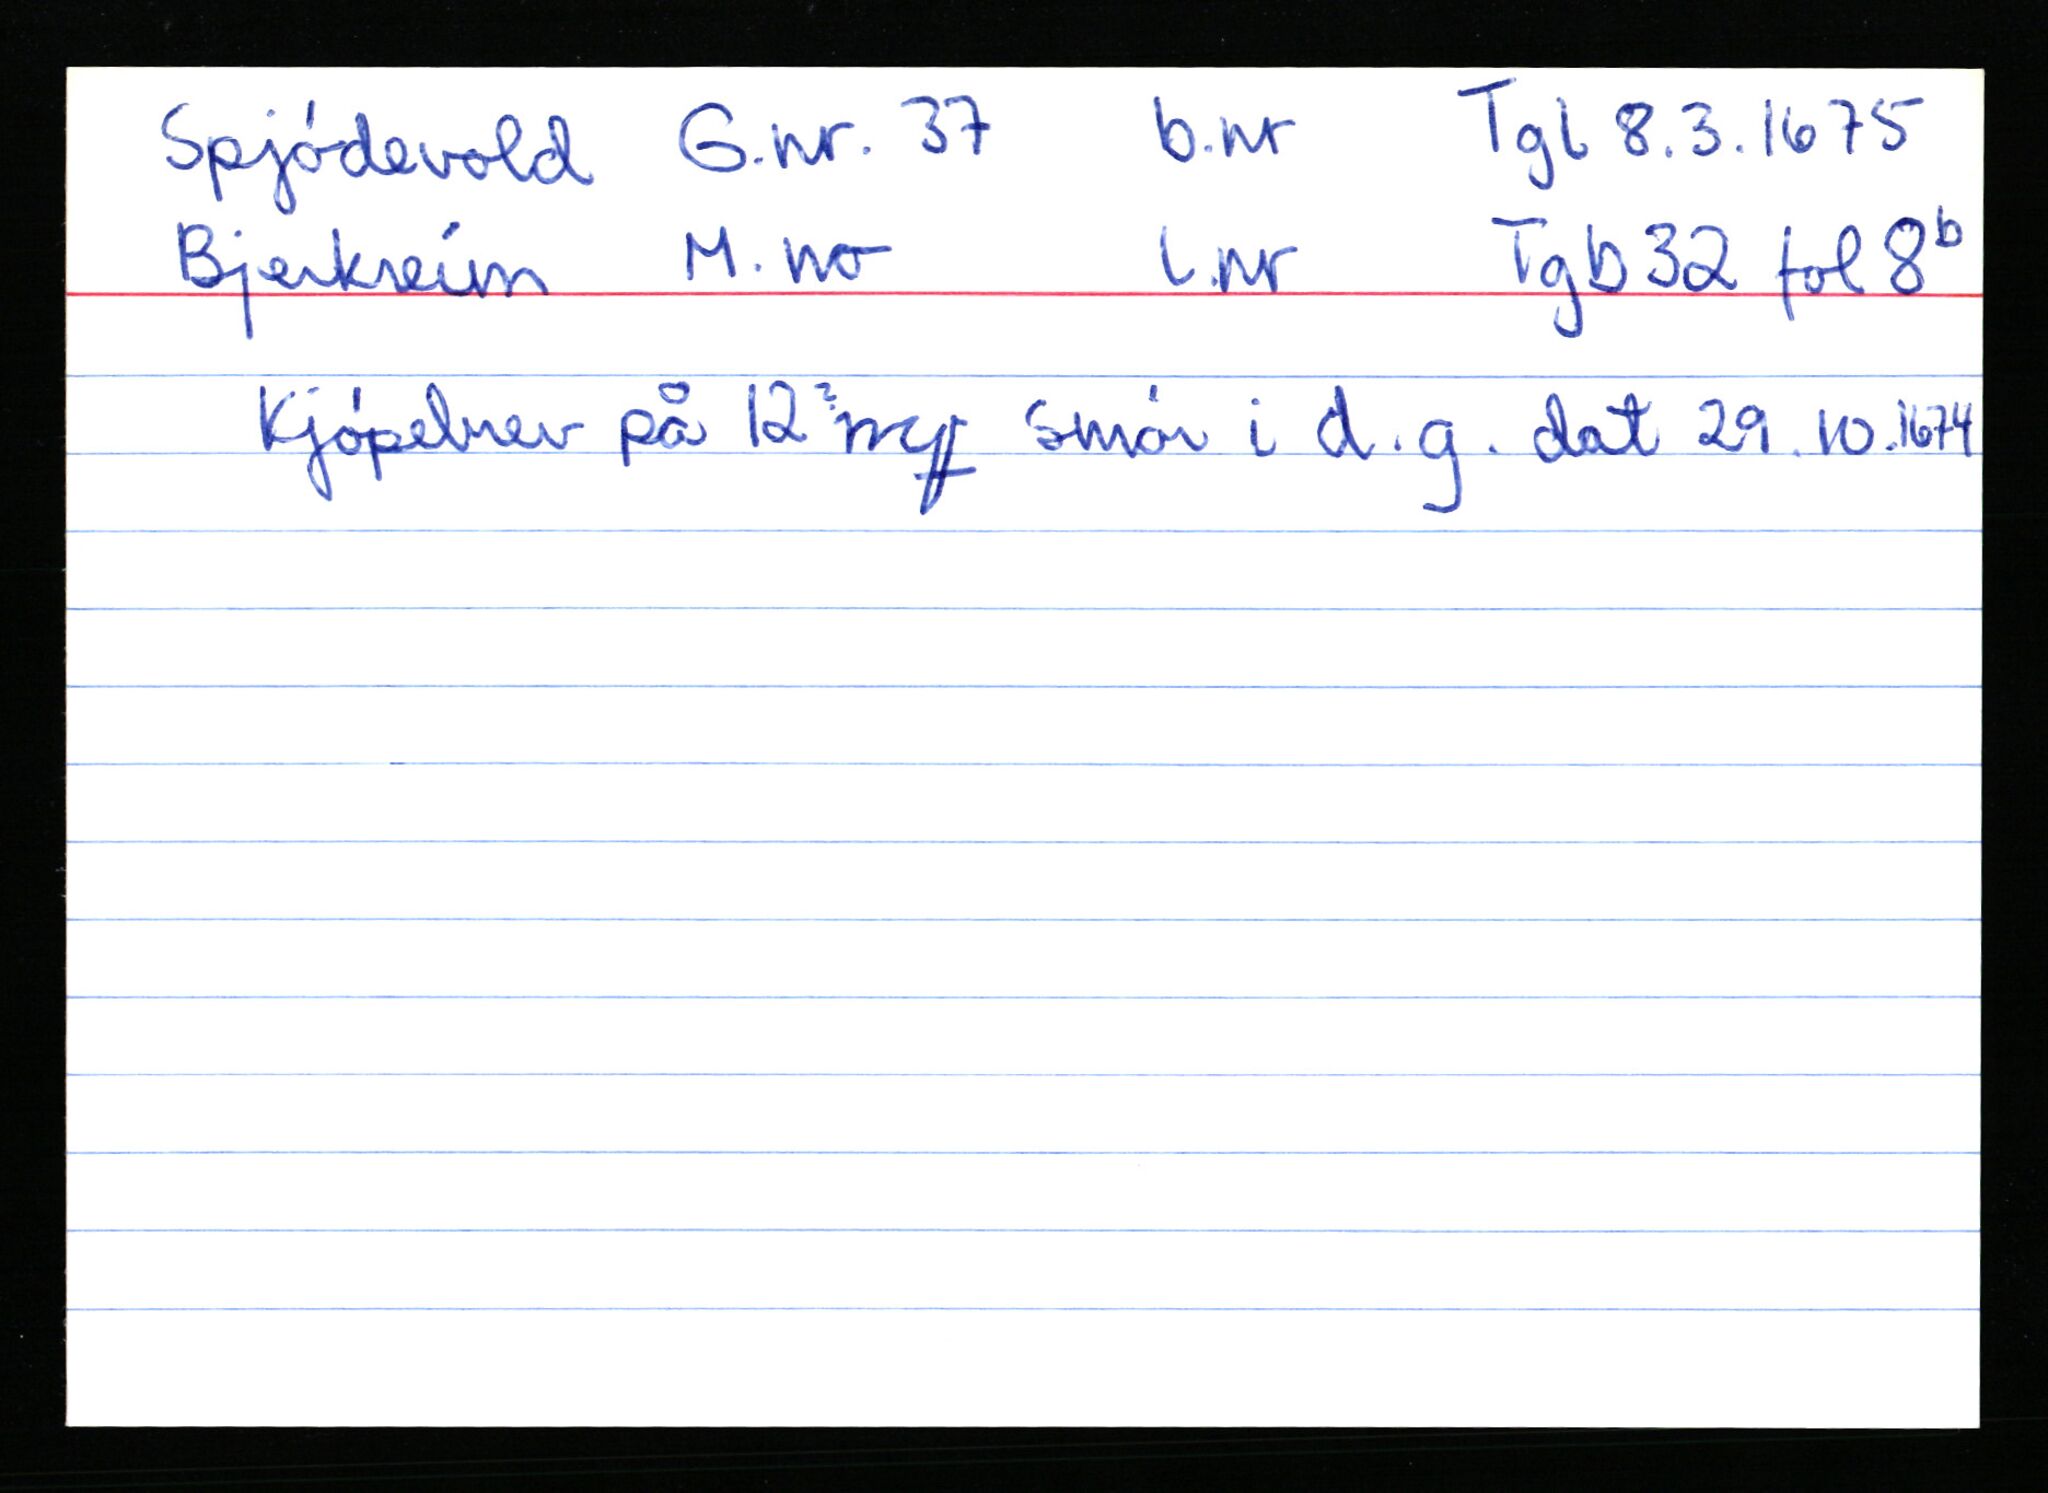 Spjódevold G.nr. 37 b.nr Tgl 8.3.1675
Bjerkreim M.no l.nr Tgb 32 fol 8b
Kjópebrev på 12? smór i d.g. dat 29.10.1674